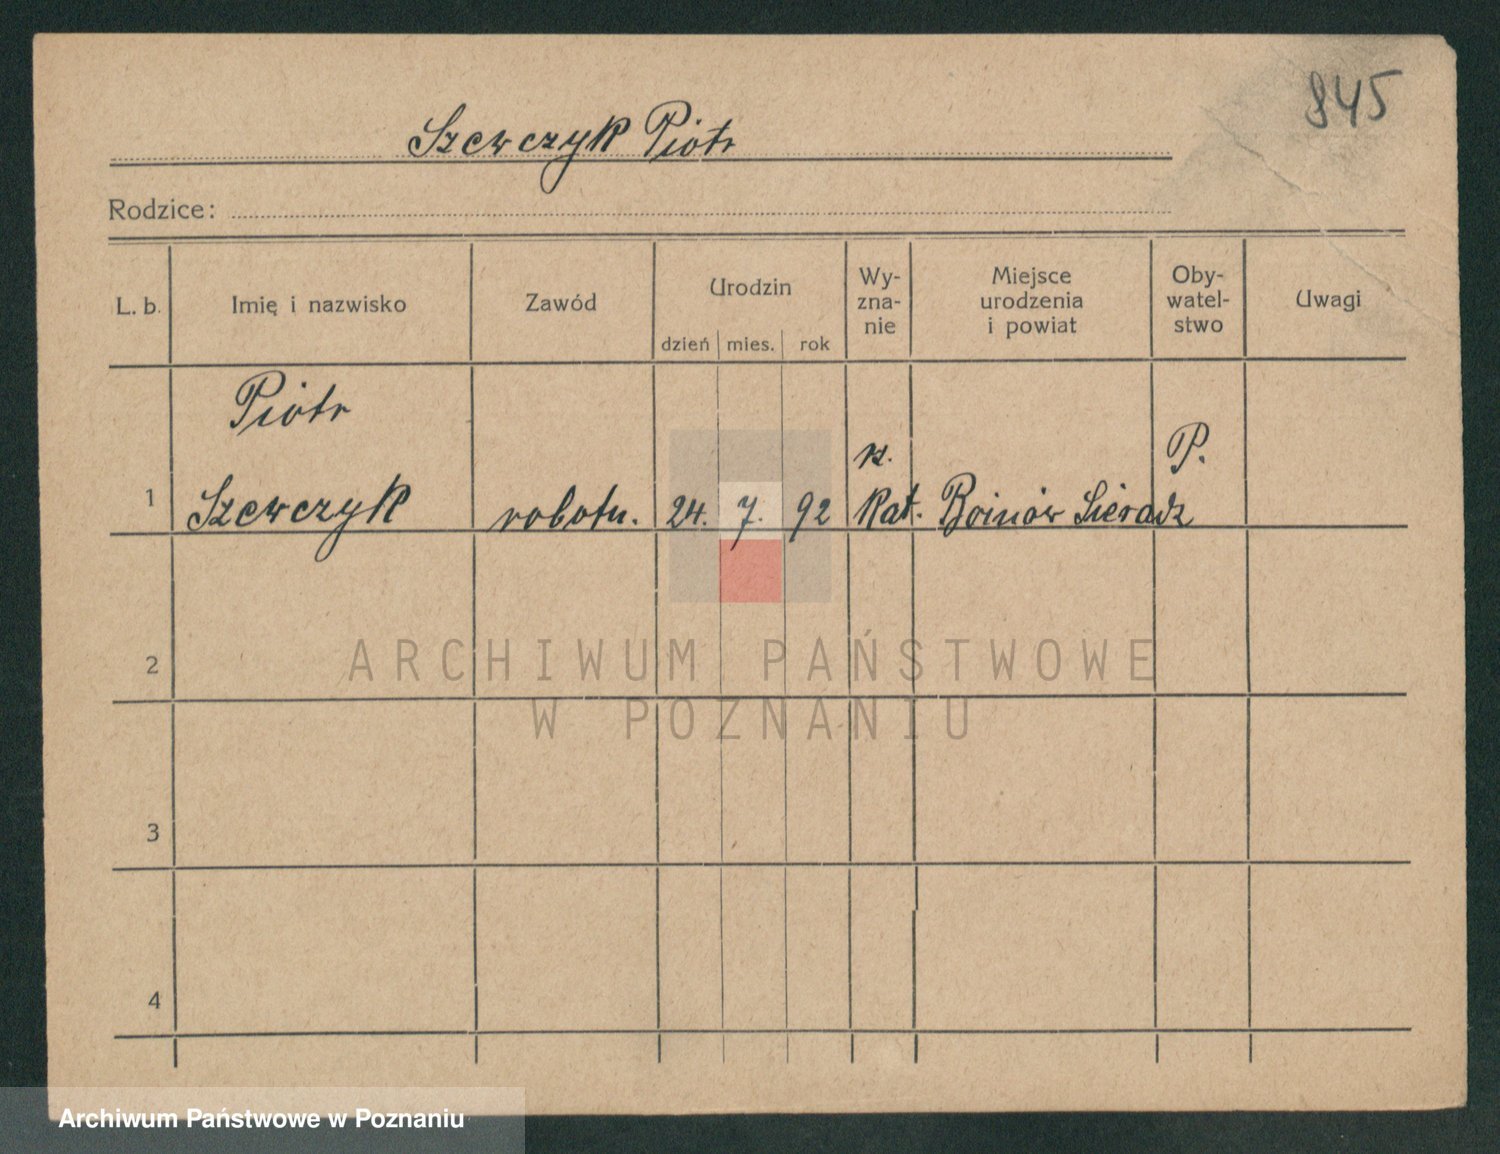 845
Szewczyk Piotr
Rodzice:
L. b.
Imię i nazwisko
Zawód
Urodzin
dzień mies. rok
Wy-
zna-
nie
Miejsce
urodzenia
i powiat
Oby-
watel-
stwo
Uwagi
Piotr
rz.
P.
1 Szewczyk robotn. 24. 7. 92 kat. Sieradz
2
3
4
ARCHIWUM PAŃSTWOWE
W POZNANIU
Archiwum Państwowe w Poznaniu